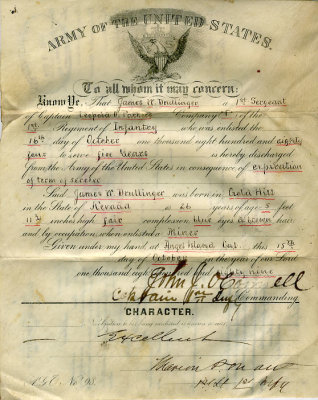 ARMY OF THE UNITED STATES.
To all whom it may concern:
Know Ye, That James W. Drullinger a 1st Sergeant
of Captain Company of the
1st Regiment of Infantry who was enlisted the
16th day of October one thousand eight hundred and eighty
four to serve five years is hereby discharged
from the Army of the United States in consequence of expiration
of term of service
Said James W. Drullinger was born in Gold Hill
in the State of Nevada is years of age 5 feet
inches high fair complexion blue eyes brown hair
and by occupation, when enlisted a Miner
Given under my hand at Angel Island Cal. this 15th
day of October in the year of our Lord
one thousand eight hundred and eighty nine
John J. O'Connell
Captain 1st Inf Commanding
CHARACTER.
Excellent
1st Lt 1st Inf